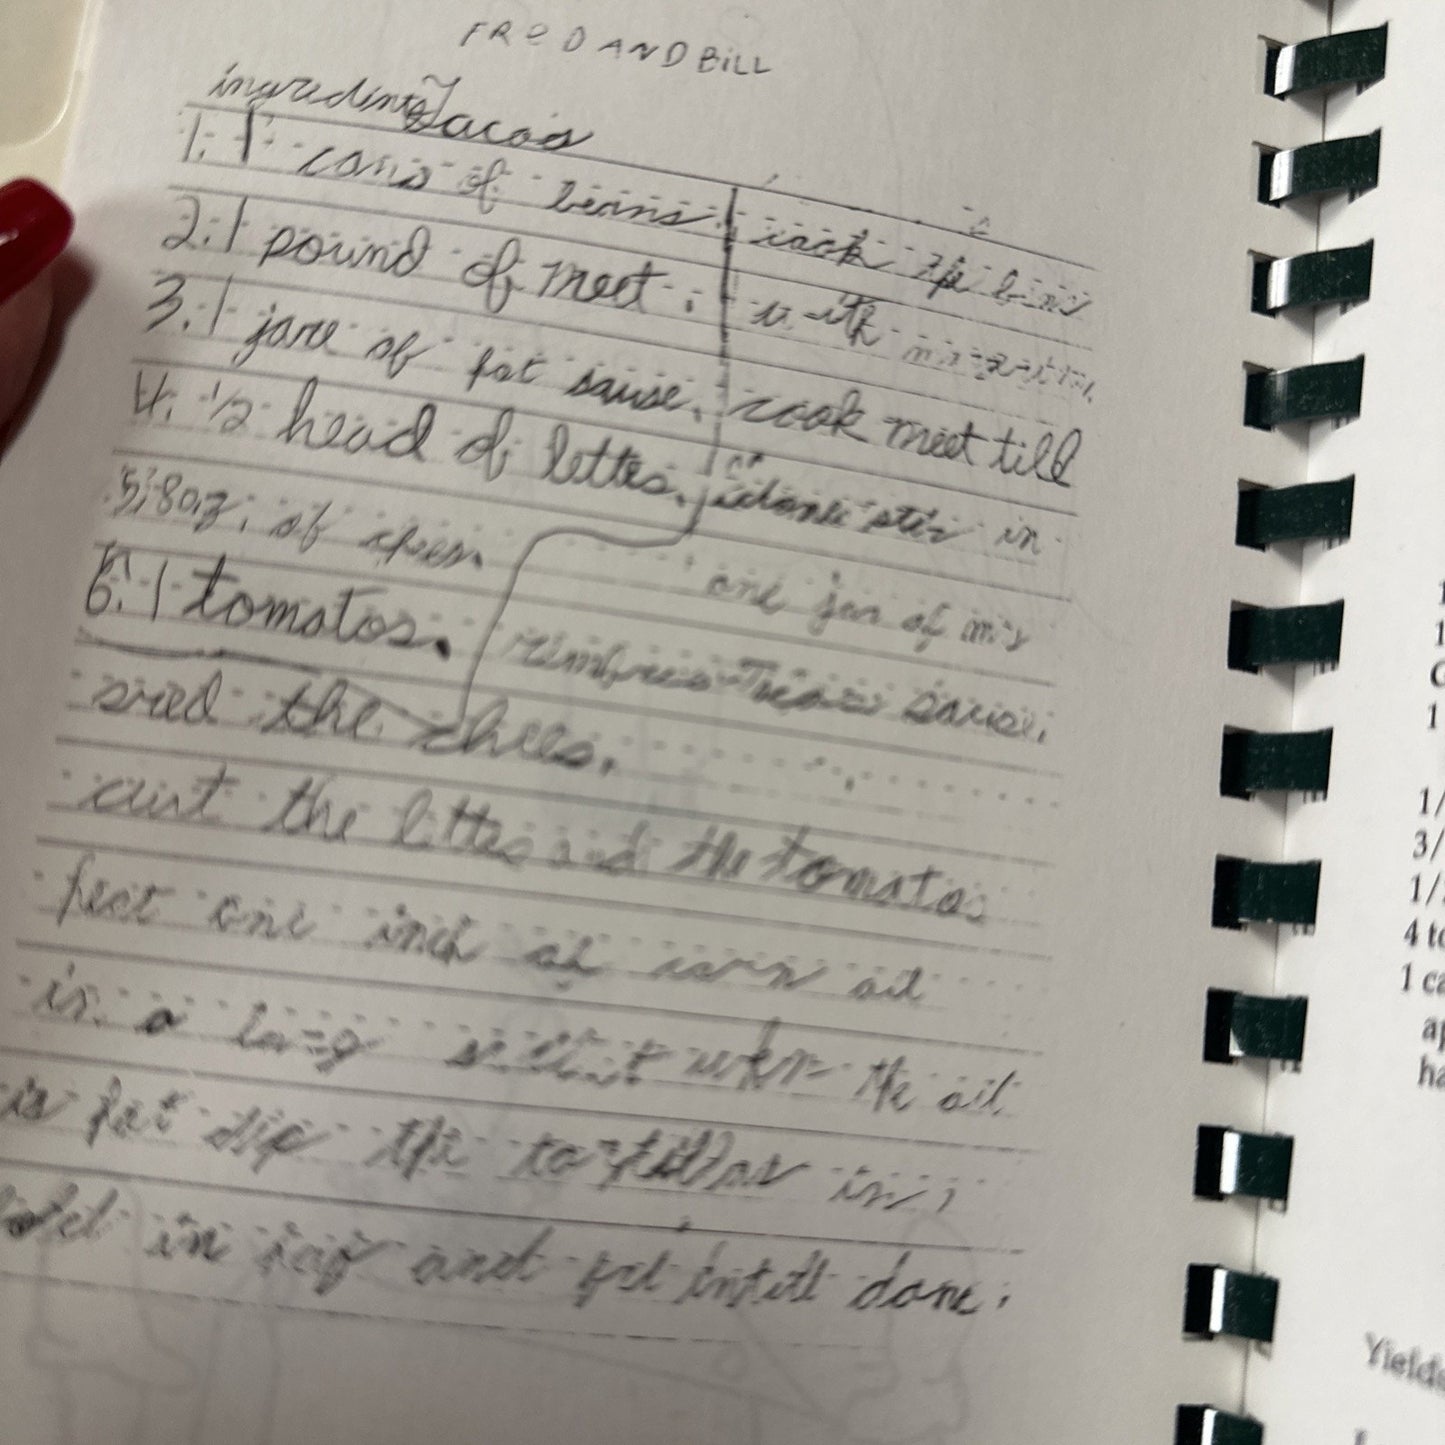 FReD AND BiLL
ingredints Tacos
1. 1 cans of beans.
2. 1 pound of meet.
3. 1 jare of hot sause.
4. 1/2 head of lettes.
5. 8 oz. of chees.
6. 1 tomatos.
cook the bens
with
cook meet till
done stir in
one jar of
sause.
sred the chees.
cut the lettes and the tomatos
heat one inch of corn oil
in a skillit when the oil
is hot dip the tortillas in,
fold in haf and fri intill done.
1
1
1
1/
3/
1/
4 to
1 ca
ap
ha
Yields